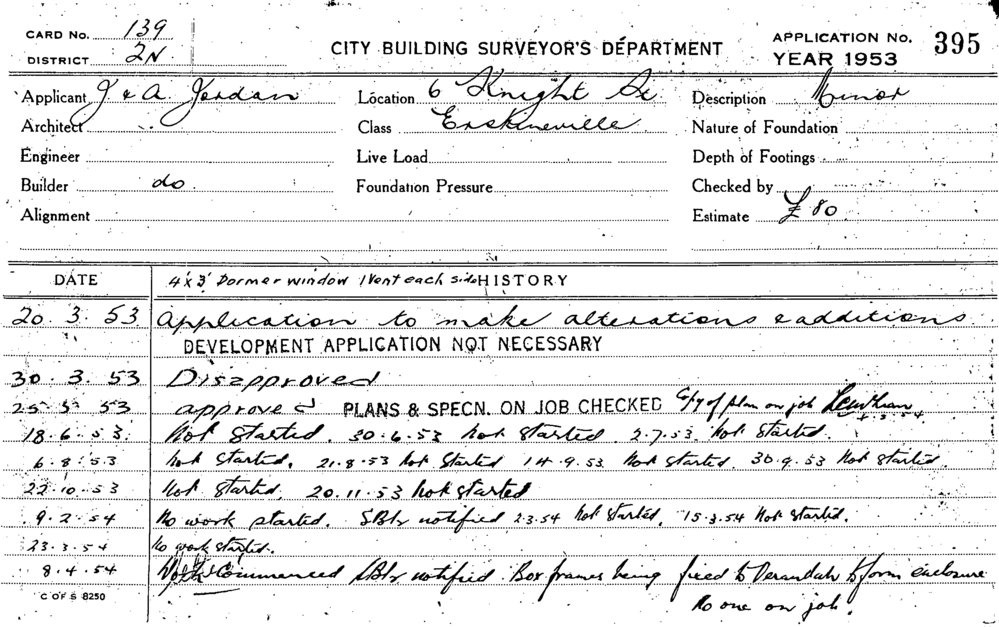 CARD No. 139
DISTRICT 2N
CITY BUILDING SURVEYOR'S DEPARTMENT
APPLICATION No. 395
YEAR 1953
Applicant J & A. Jordan Location 6 Knight St Description Minor
Architect Class Erskineville Nature of Foundation
Engineer Live Load Depth of Footings
Builder do Foundation Pressure Checked by
Alignment Estimate £80
DATE 4'x3' Dormer window 1 Vent each side HISTORY
20.3.53 Application to make alterations & additions
DEVELOPMENT APPLICATION NOT NECESSARY
30.3.53 Disapproved
25.5.53 approved PLANS & SPECN. ON JOB CHECKED C/y of plan on job
18.6.53. Not Started. 30.6.53 Not Started. 2.7.53. Not Started.
6.8.53 Not Started. 21.8.53 Not Started 14.9.53 Not Started. 30.9.53 Not Started.
22.10.53 Not Started. 20.11.53 Not Started
9.2.54 No work started. notified 2.3.54 Not Started. 15.3.54 Not Started.
23.3.54 No work started.
8.4.54 Work Commenced notified. Box frames being fixed to Verandah to form enclosure
No one on job.
C OF S 8250